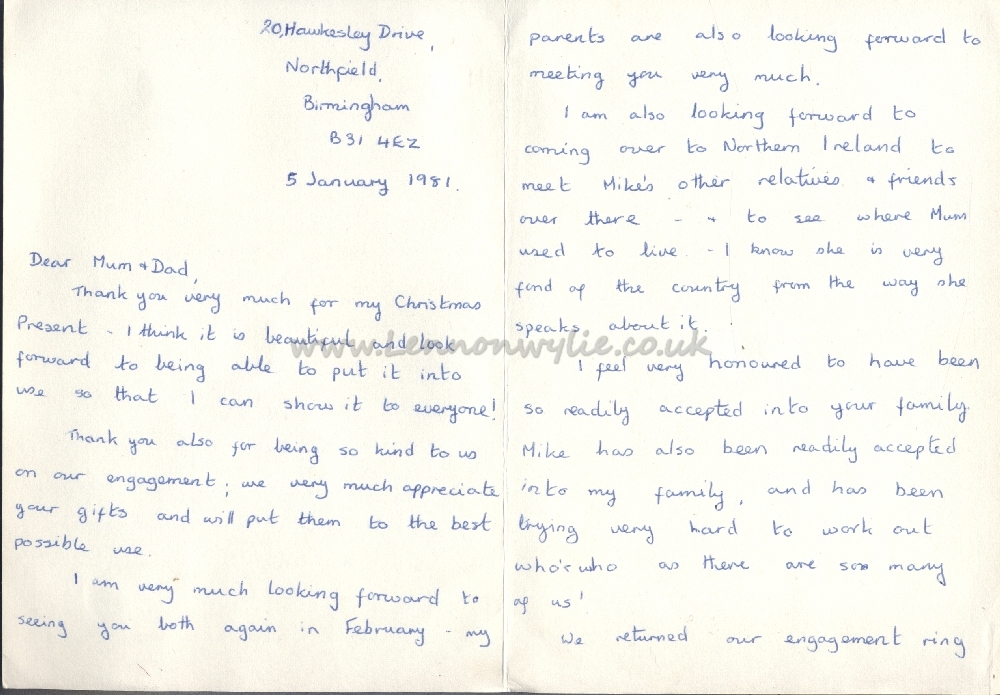 20, Hawkesley Drive,
Northfield,
Birmingham
B31 4EZ
5 January 1981.
Dear Mum & Dad,
Thank you very much for my Christmas
Present - I think it is beautiful and look
forward to being able to put it into
use so that I can show it to everyone!
Thank you also for being so kind to us
on our engagement; we very much appreciate
your gifts and will put them to the best
possible use.
I am very much looking forward to
seeing you both again in February - my
parents are also looking forward to
meeting you very much.
I am also looking forward to
coming over to Northern Ireland to
meet Mike's other relatives & friends
over there - & to see where Mum
used to live - I know she is very
fond of the country from the way she
speaks about it.
I feel very honoured to have been
so readily accepted into your family.
Mike has also been readily accepted
into my family, and has been
trying very hard to work out
who's who as there are soo many
of us!
We returned our engagement ring
www.Lennonwylie.co.uk